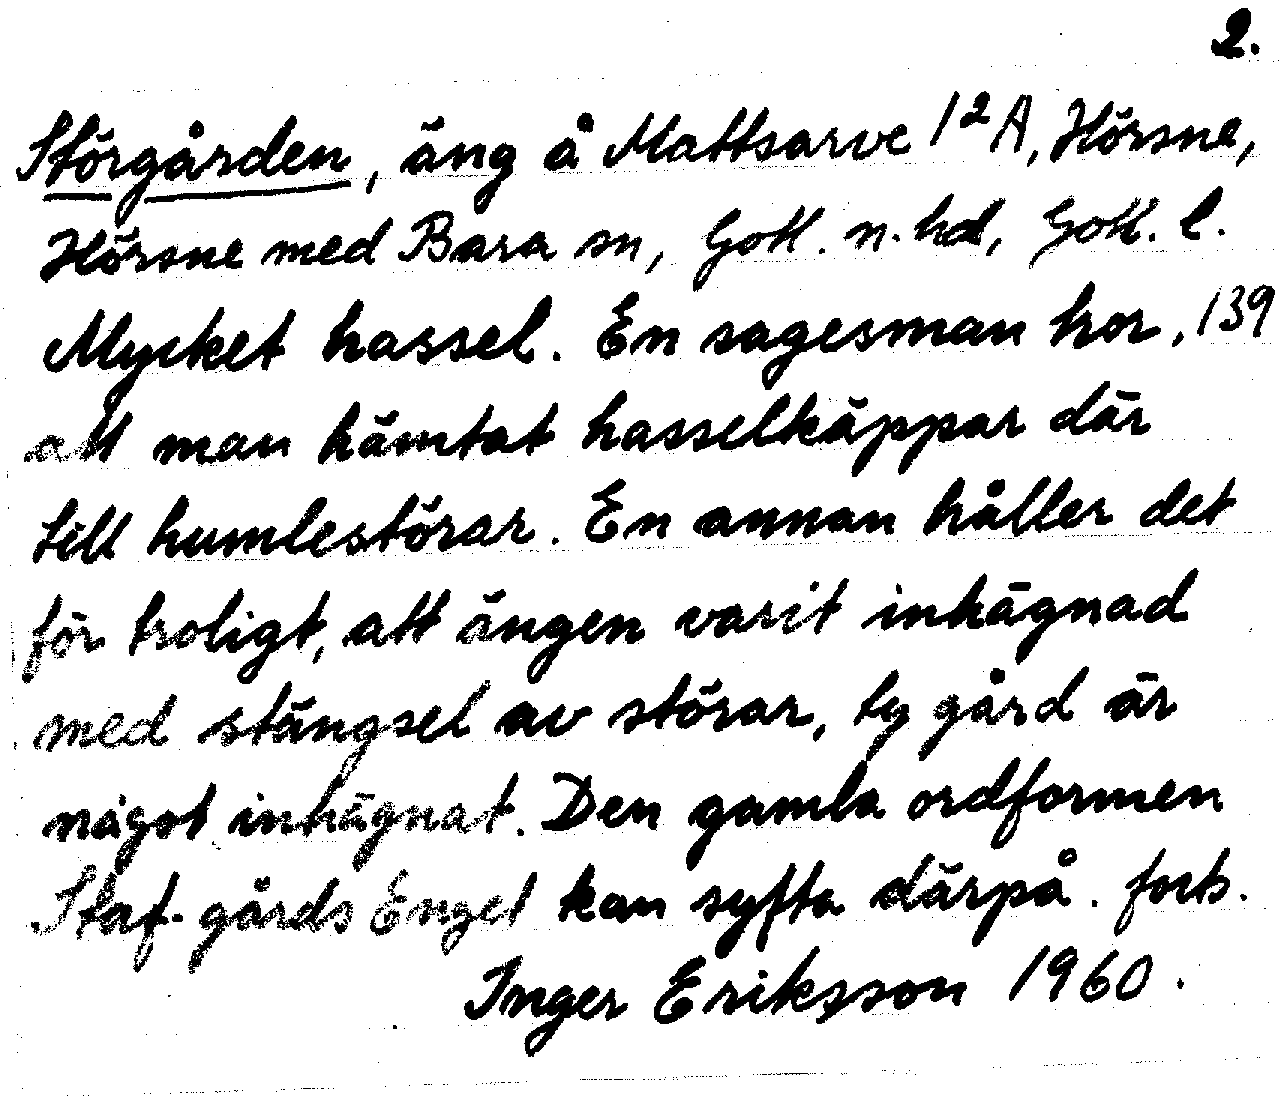 2.
Störgården, äng å Mattsarve 1²A, Hörsne,
Hörsne med Bara sn, Gotl. n. hd, Gotl. l.
Mycket hassel. En sagesman tror, 139
att man hämtat hasselkäppar där
till humlestörar. En annan håller det
för troligt, att ängen varit inhägnad
med stängsel av störar, ty gård är
något inhägnat. Den gamla ordformen
Staf-gårds Enget kan syfta därpå. forts.
Inger Eriksson 1960.